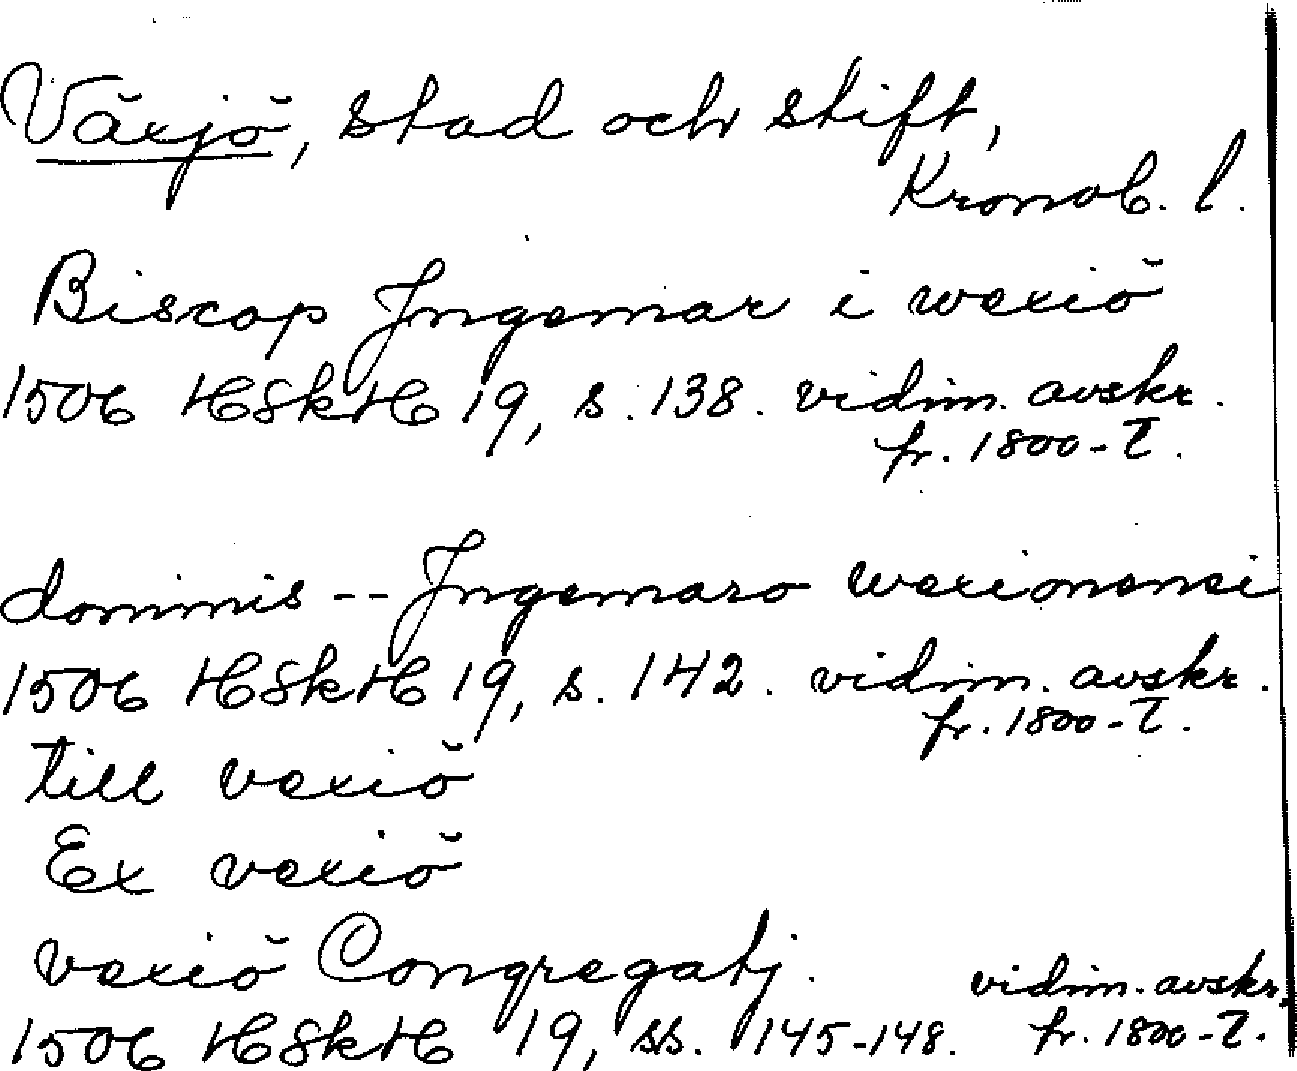 Växjö, stad och stift,
Kronob. l.
Biscop Jngemar i wexiö
1506 HSkH 19, s. 138. vidim. avskr.
fr. 1800-t.
dominis -- Jngemaro wexionensi
1506 HSkH 19, s. 142. vidim. avskr.
fr. 1800-t.
till vexiö
Ex vexiö
vexiö Congregatj.
vidim. avskr.
1506 HSkH 19, ss. 145-148. fr. 1800-t.